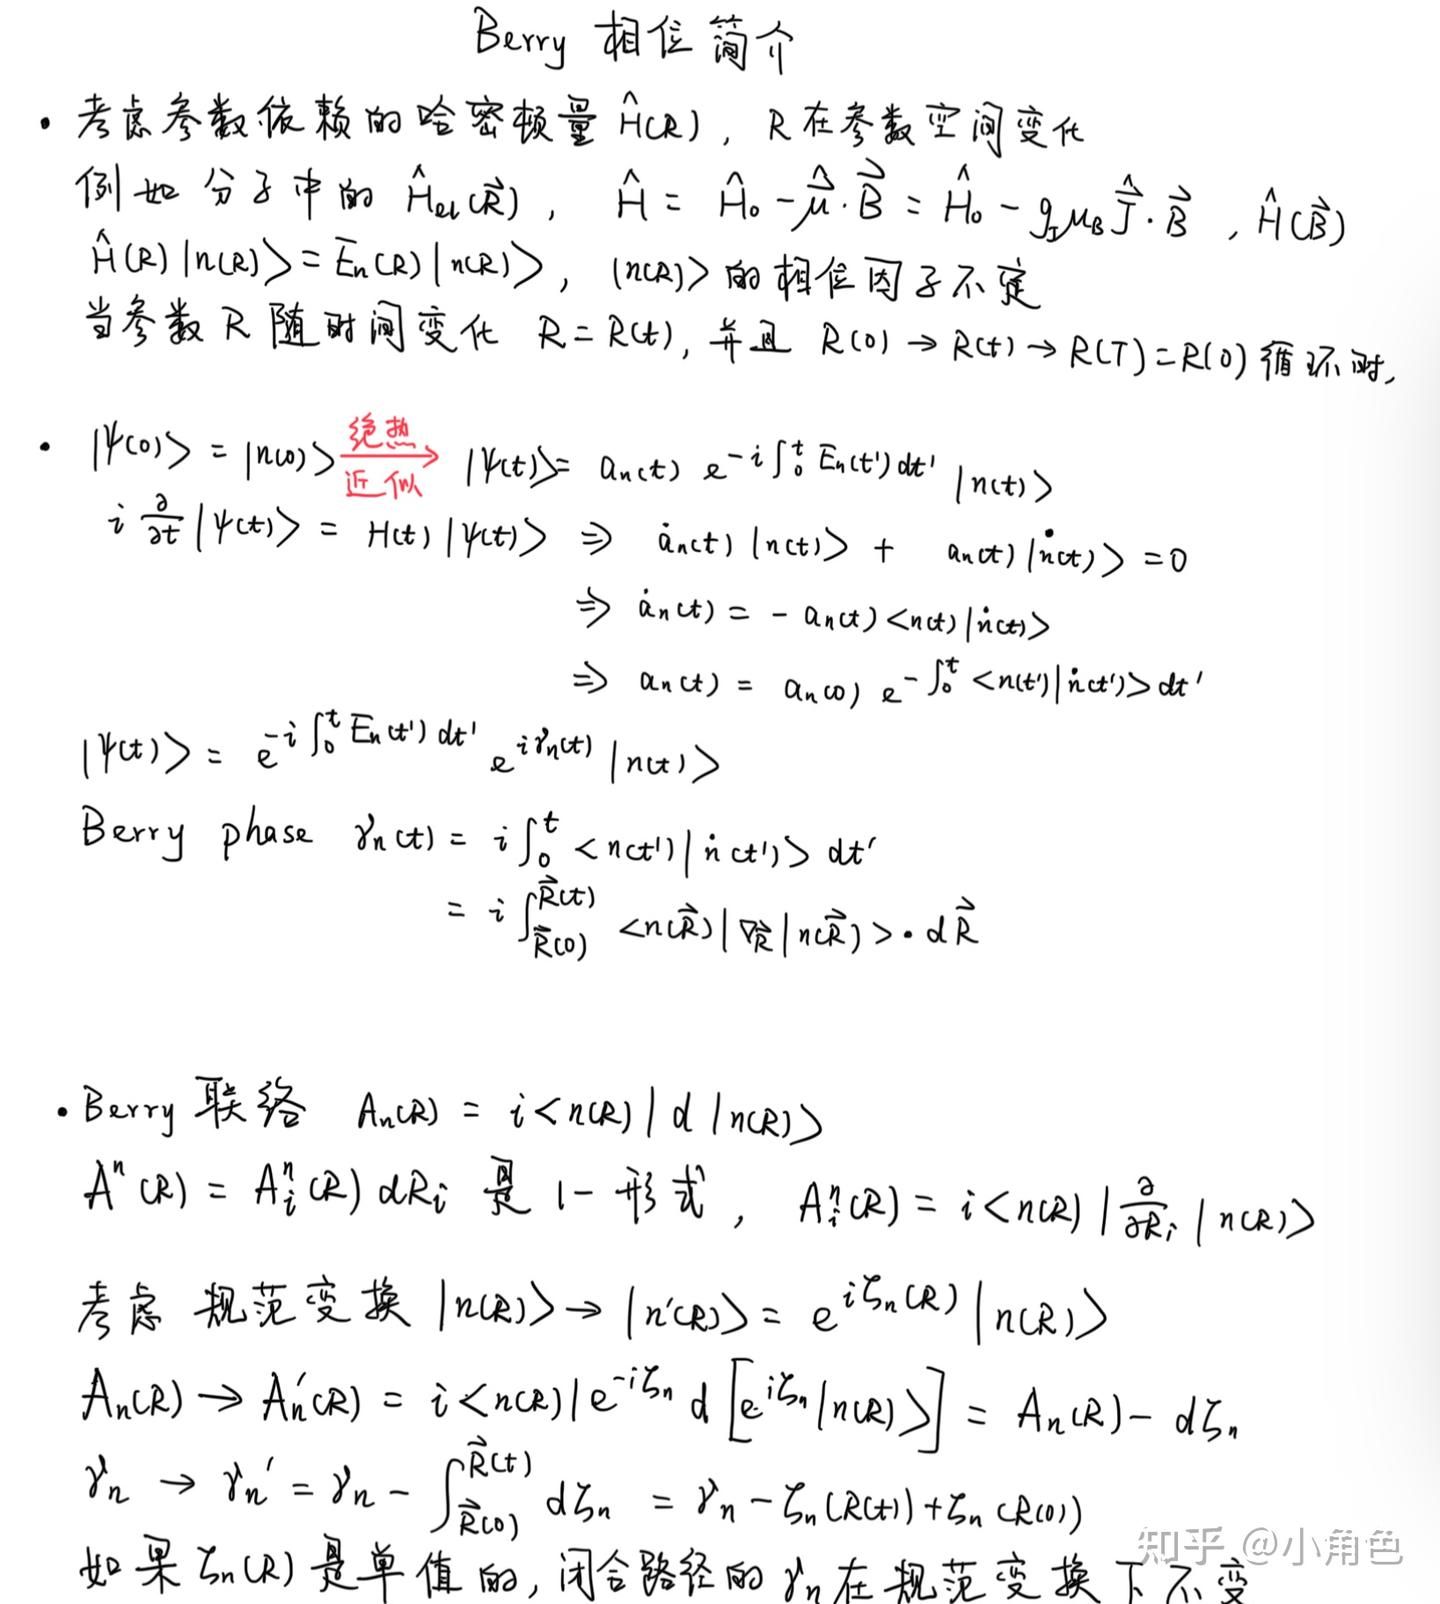 Berry 相位简介
• 考虑参数依赖的哈密顿量 Ĥ(R), R在参数空间变化
例如分子中的 Ĥ_el(R⃗), Ĥ = Ĥ₀ - μ̂⃗·B⃗ = Ĥ₀ - g_I μ_B Ĵ⃗·B⃗, Ĥ(B⃗)
Ĥ(R)|n(R)> = E_n(R)|n(R)>, |n(R)>的相位因子不定
当参数R随时间变化 R=R(t), 并且 R(0)→R(t)→R(T)=R(0)循环时,
• |ψ(0)> = |n(0)> 绝热近似→ |ψ(t)> = a_n(t) e^{-i∫_0^t E_n(t')dt'} |n(t)>
i ∂/∂t |ψ(t)> = H(t)|ψ(t)> ⇒ ȧ_n(t)|n(t)> + a_n(t)|ṅ(t)> = 0
⇒ ȧ_n(t) = - a_n(t)<n(t)|ṅ(t)>
⇒ a_n(t) = a_n(0) e^{-∫_0^t <n(t')|ṅ(t')>dt'}
|ψ(t)> = e^{-i∫_0^t E_n(t')dt'} e^{iγ_n(t)} |n(t)>
Berry phase γ_n(t) = i∫_0^t <n(t')|ṅ(t')> dt'
= i∫_{R⃗(0)}^{R⃗(t)} <n(R⃗)|∇_R⃗|n(R⃗)>·dR⃗
• Berry 联络 A_n(R) = i<n(R)|d|n(R)>
A^n(R) = A_i^n(R)dR_i 是 1-形式, A_i^n(R) = i<n(R)|∂/∂R_i|n(R)>
考虑 规范变换 |n(R)> → |n'(R)> = e^{iζ_n(R)}|n(R)>
A_n(R) → A_n'(R) = i<n(R)|e^{-iζ_n} d[e^{iζ_n}|n(R)>] = A_n(R) - dζ_n
γ_n → γ_n' = γ_n - ∫_{R⃗(0)}^{R⃗(t)} dζ_n = γ_n - ζ_n(R(t)) + ζ_n(R(0))
如果 ζ_n(R) 是单值的, 闭合路径的 γ_n 在规范变换下不变
知乎 @小角色